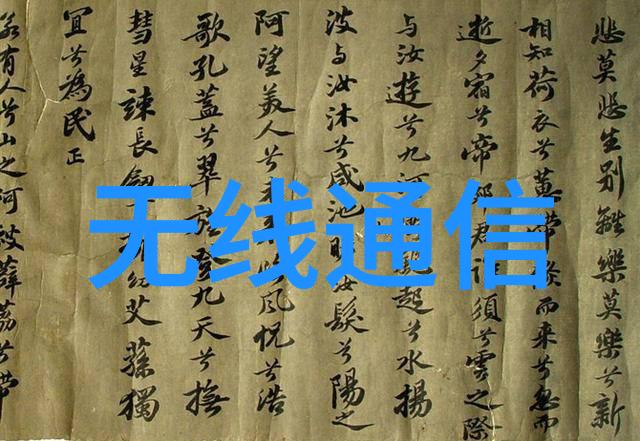 无线通信
悲莫悲生別離樂莫樂兮新
相知荷衣兮蕙帶倐而來兮忽而
逝夕宿兮帝郊君須兮雲之際
与汝遊兮九河起兮水揚
波与汝沐兮咸池汝髮兮陽之
阿望美人兮風怳兮浩
歌孔蓋兮翠登九天兮撫
彗星竦長劔幼艾蓀獨
宜兮為民正
若有人兮山之阿被薜荔兮帶